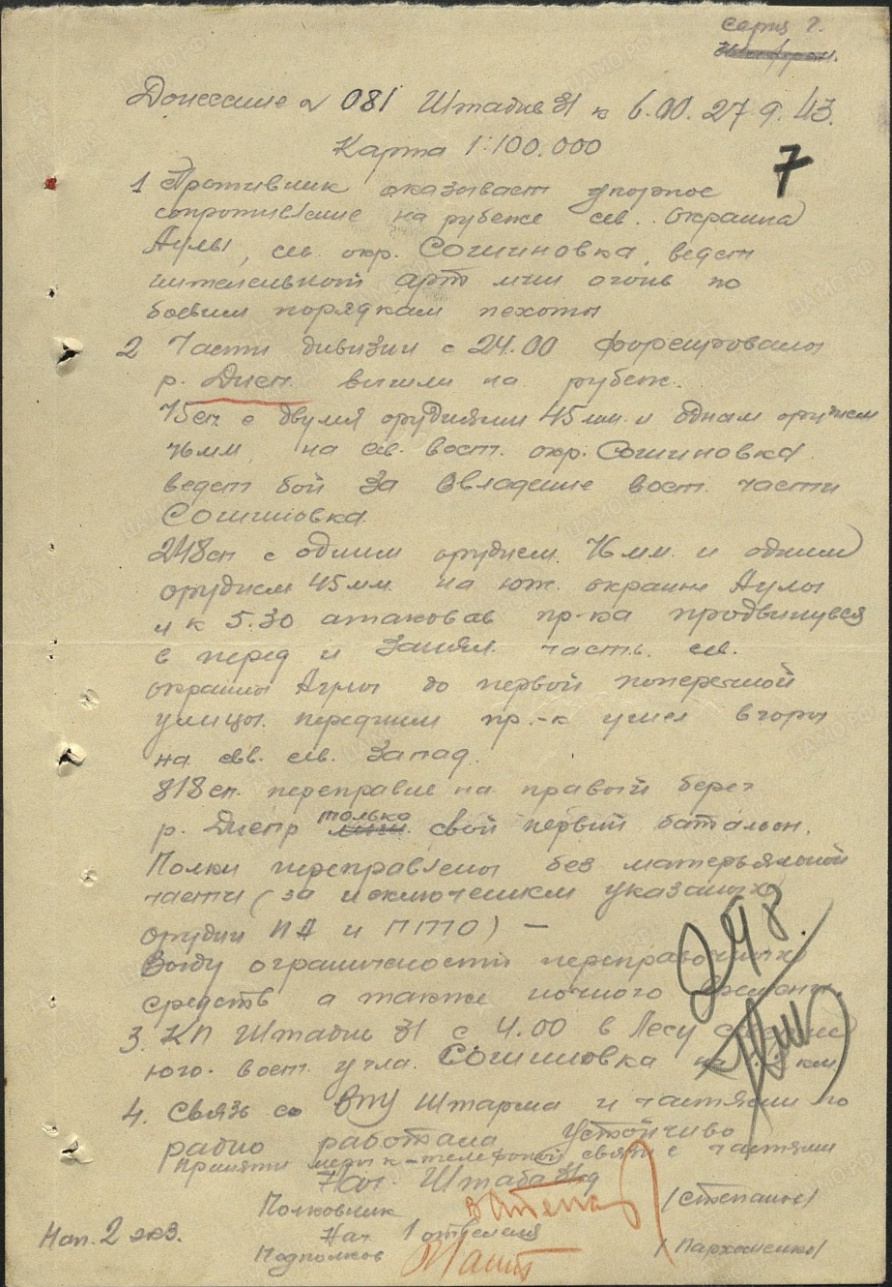 Серия Г.
Донесение № 081 Штадив 31 к 6.00. 27.9.43.
Карта 1:100.000
7
1 Противник оказывает упорное
сопротивление на рубеже сев. окраина
Аулы, сев. окр. Сошиновка, ведет
интенсивной арт мин огонь по
боевым порядкам пехоты
2 Части дивизии с 24.00 форсировали
р. Днеп. вышли на рубеж.
75сп с двумя орудиями 45 мм. и одним орудием
76мм, на сев. вост. окр. Сошиновка.
ведет бой за овладение вост. части
Сошиновка
248сп с одним орудием 76 мм. и одним
орудием 45мм. на юж. окраине Аулы
и к 5.30 атаковав пр-ка продвинувся
в перед и занял часть. сев.
окраины Аулы до первой поперечной
улицы. передним пр-к
на свв. сев. запад.
818сп. переправле на правый берег
р. Днепр только свой первый батальон.
Полки переправлены без матерьяльной
части (за исключением указаных
орудий ПА и ПТО) —
Ввиду ограничености переправочных
средств а также ночного времени.
3. КП Штадив 31 с 4.00 в Лесу
юго. вост. угла. Сошиновка км.
4. Связь со ВПУ Штарма и частями по
радио работала устойчиво
Приняты меры к телефоной связи с частями
Нач. Штаба 31сд
Полковник /Степанов/
Нач 1 отделения
Подполков /Пархоменко/
Нап. 2 экз.
248